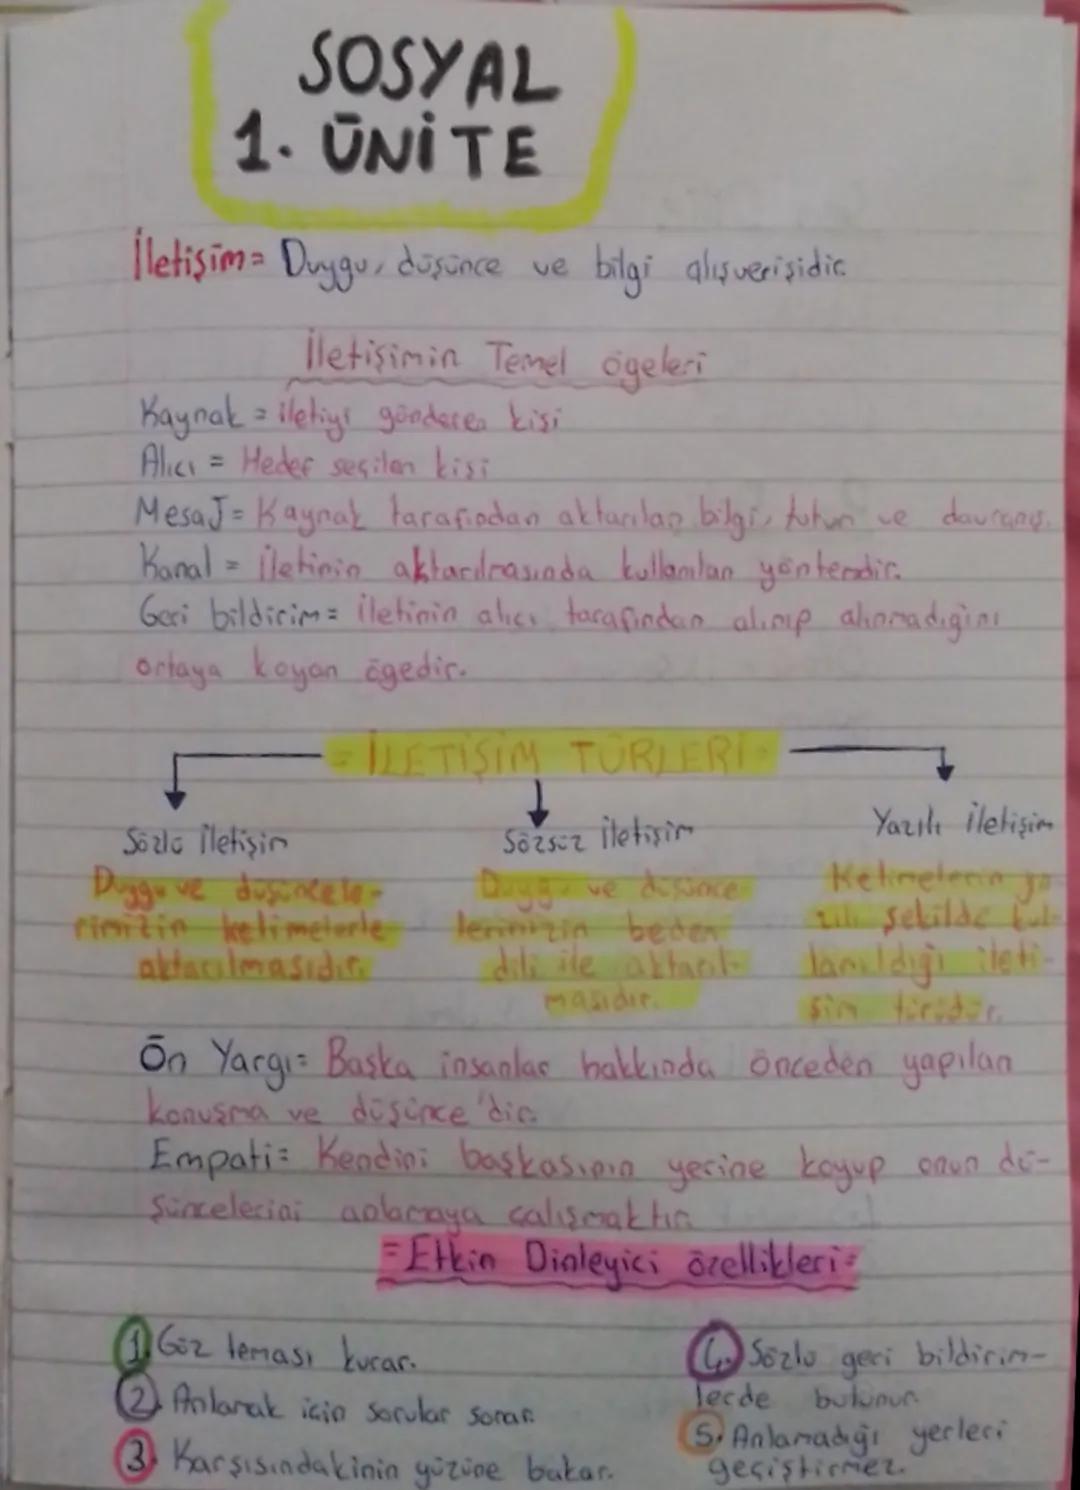 SOSYAL
1. ÜNİTE
İletişim= Duygu, düşünce ve bilgi alışverişidir.
İletişimin Temel ögeleri
Kaynak = iletiyi gönderen kişi
Alıcı = Hedef seçilen kişi
MesaJ= Kaynak tarafından aktarılan bilgi, tutum ve davranış.
Kanal = İletinin aktarılmasında kullanılan yöntemdir.
Geri bildirim= iletinin alıcı tarafından alınıp alınmadığını
ortaya koyan ögedir.
= İLETİŞİM TÜRLERİ =
Sözlü iletişim
Sözsüz iletişim
Yazılı iletişim
Duygu ve düşüncele-
rimizin kelimelerle
aktarılmasıdır.
Duygu ve düşünce-
lerimizin beden
dili ile aktarıl-
masıdır.
Kelimelerin ya-
zılı şekilde kul-
lanıldığı ileti-
şim türüdür.
Ön Yargı= Başka insanlar hakkında önceden yapılan
konuşma ve düşünce'dir.
Empati= Kendini başkasının yerine koyup onun dü-
şüncelerini anlamaya çalışmaktır.
=Etkin Dinleyici özellikleri=
1. Göz teması kurar.
2. Anlamak için sorular sorar.
3. Karşısındakinin yüzüne bakar.
4. Sözlü geri bildirim-
lerde bulunur.
5. Anlamadığı yerleri
geçiştirmez.